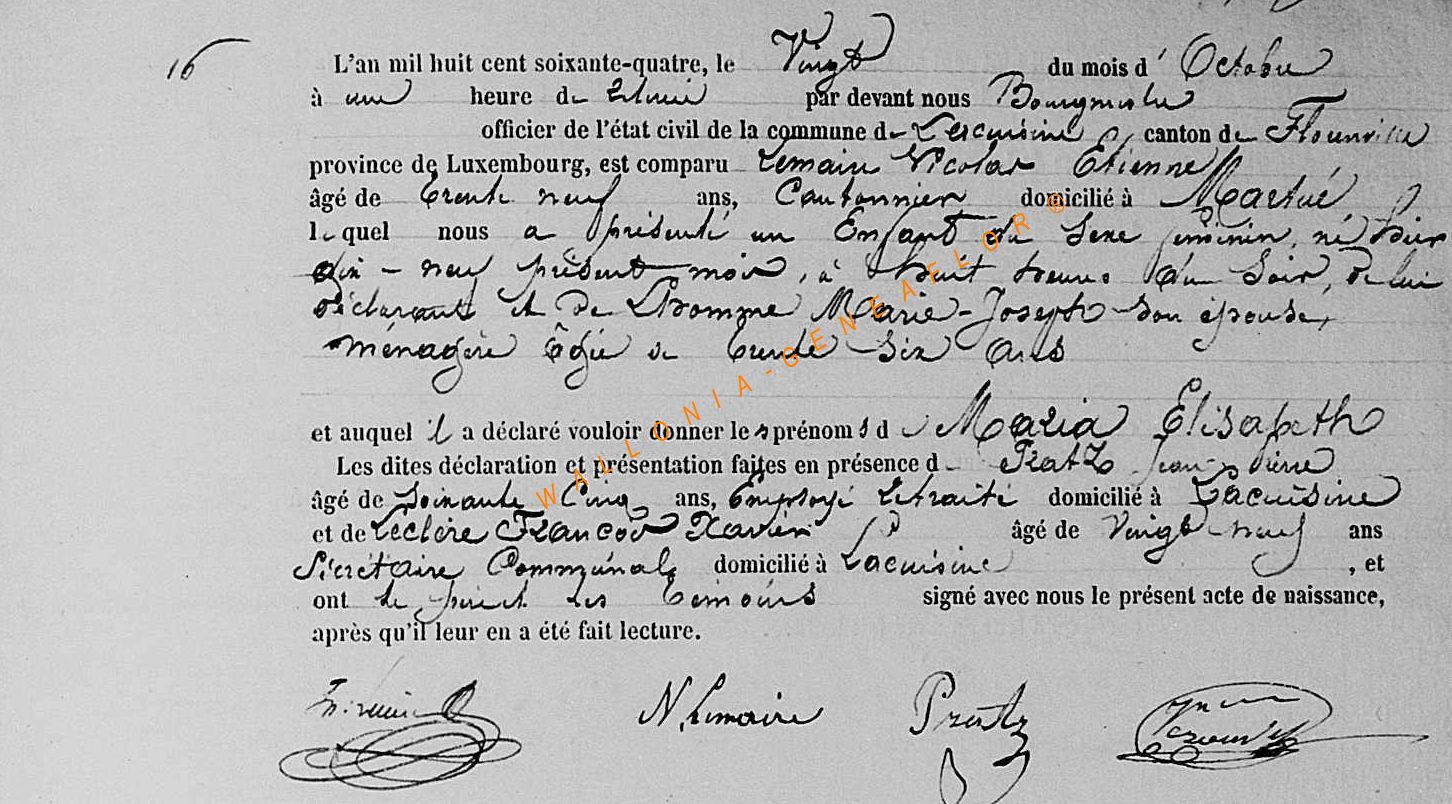 16
L'an mil huit cent soixante-quatre, le Vingt du mois d' Octobre
à une heure de relevée par devant nous Bourgmestre
officier de l'état civil de la commune de Lacuisine, canton de Florenville
province de Luxembourg, est comparu Lemaire Nicolas Etienne
âgé de trente neuf ans, Cantonnier domicilié à Martué
lequel nous a présenté un Enfant du sexe féminin, né hier
dix-neuf présent mois, à huit heures du soir, de lui
déclarant et de Lhomme Marie-Joseph son épouse,
ménagère âgée de trente six ans
et auquel il a déclaré vouloir donner les prénoms d Maria Elisabeth
Les dites déclaration et présentation faites en présence d Jean Pierre
âgé de soixante Cinq ans, Employé retraité domicilié à Lacuisine
et de Leclère François Xavier âgé de Vingt-neuf ans
Sécrétaire Communal domicilié à Lacuisine, et
ont le père et les témoins signé avec nous le présent acte de naissance,
après qu'il leur en a été fait lecture.
N. Lemaire
WALLONIA-GENEALOR ®